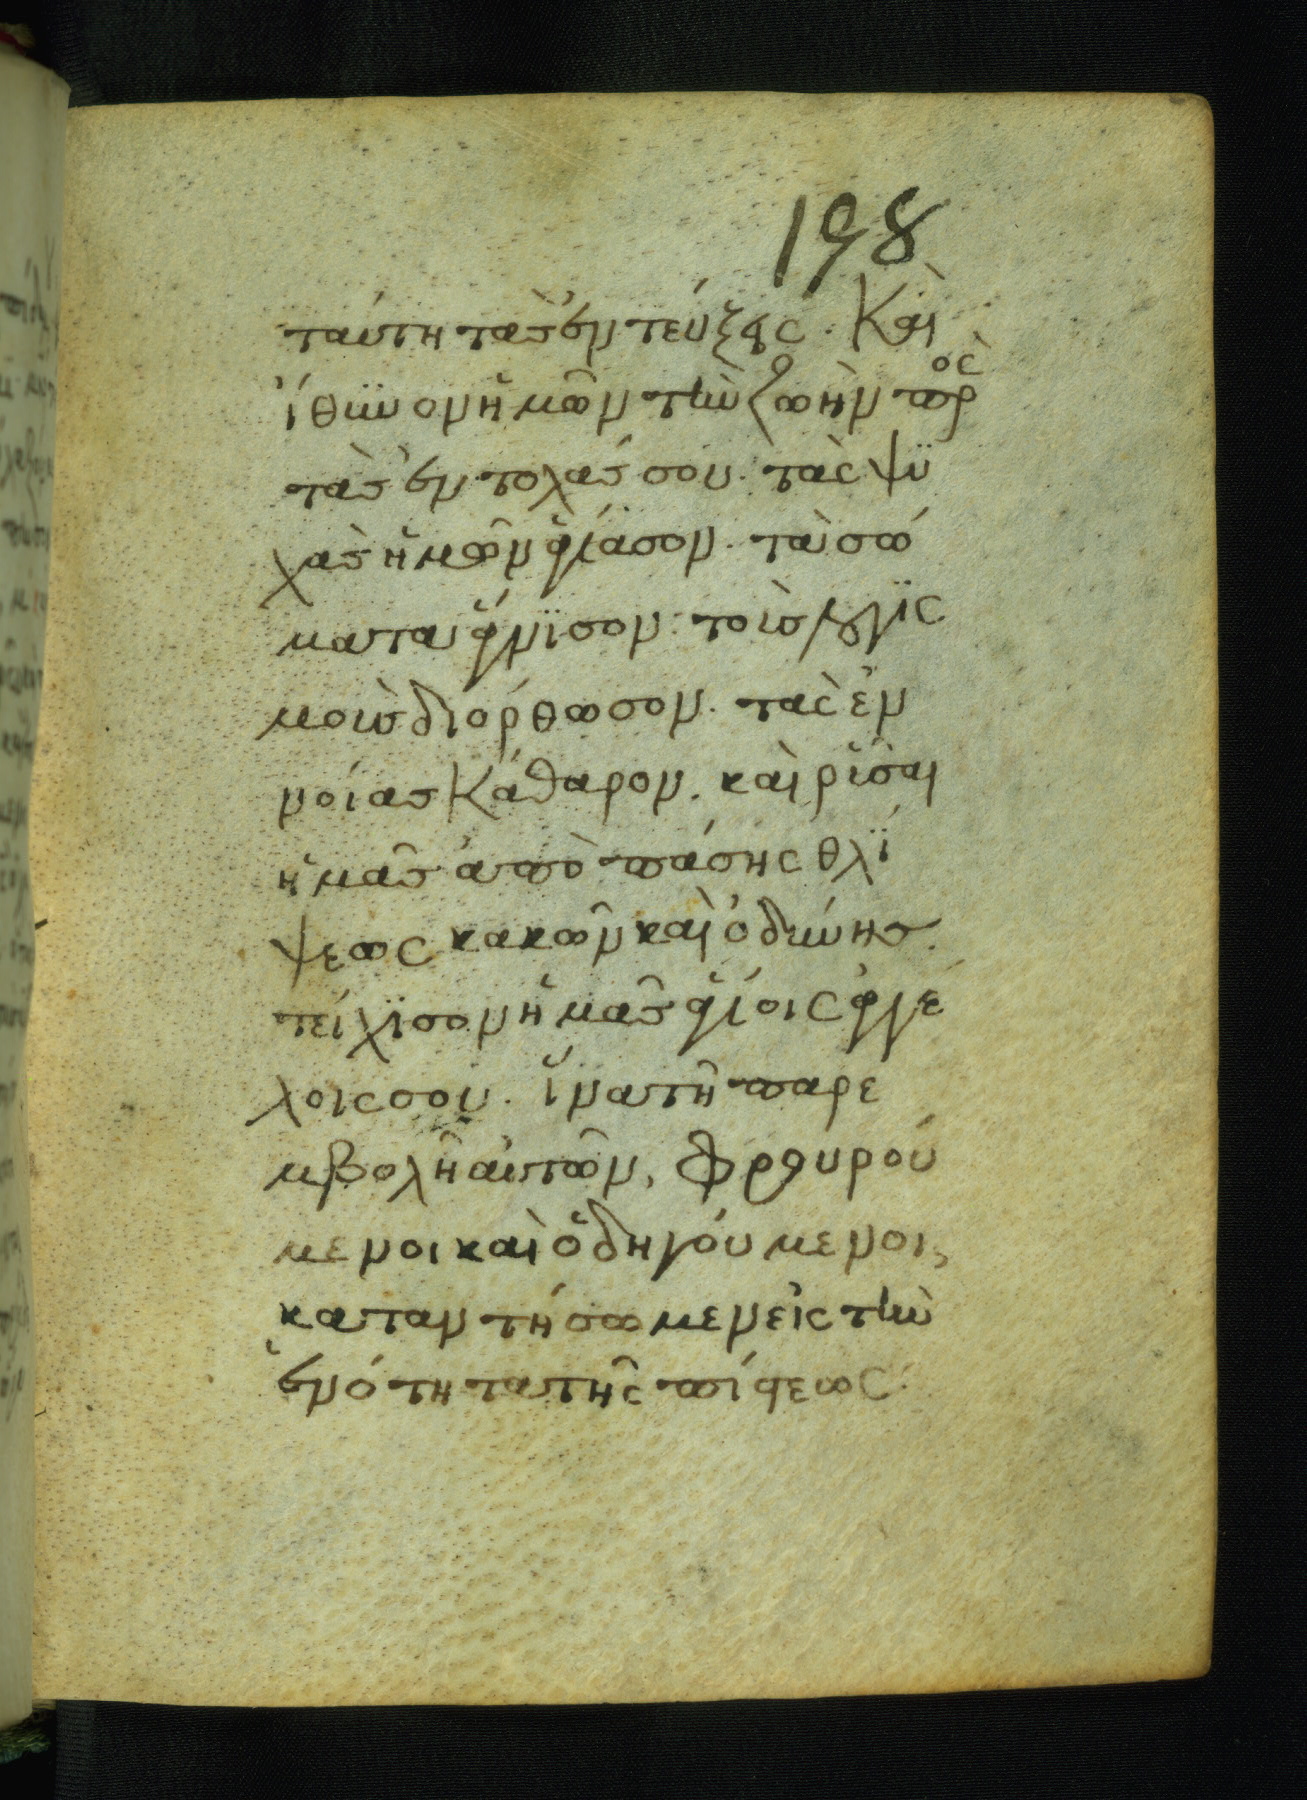 198
ταύτη τὰς ἐντεύξεις. Καὶ
ἴθϋνον ἡμῶν τὴν ζωὴν πρὸς
τὰς ἐντολάς σου. τὰς ψϋ
χὰς ἡμῶν ἁγίασον. τὰ σώ
ματα ἅγνϊσον. τοὺς λογϊς
μοὺς διόρθωσον. τὰς ἐν
νοίας Κάθαρον. καὶ ρῦσαι
ἡμᾶς ἀπὸ πάσης θλϊ
ψεως κακῶν καὶ ὀδύνης.
τείχϊσον ἡμᾶς ἁγίοις ἀγγέ
λοις σου. ἵνα τῆ παρε
μβολῆ αὐτῶν, φρουρού
μενοι καὶ ὁδηγούμενοι,
καταντήσωμεν εἰς τὴν
ἑνότητα τῆς πίστεως.